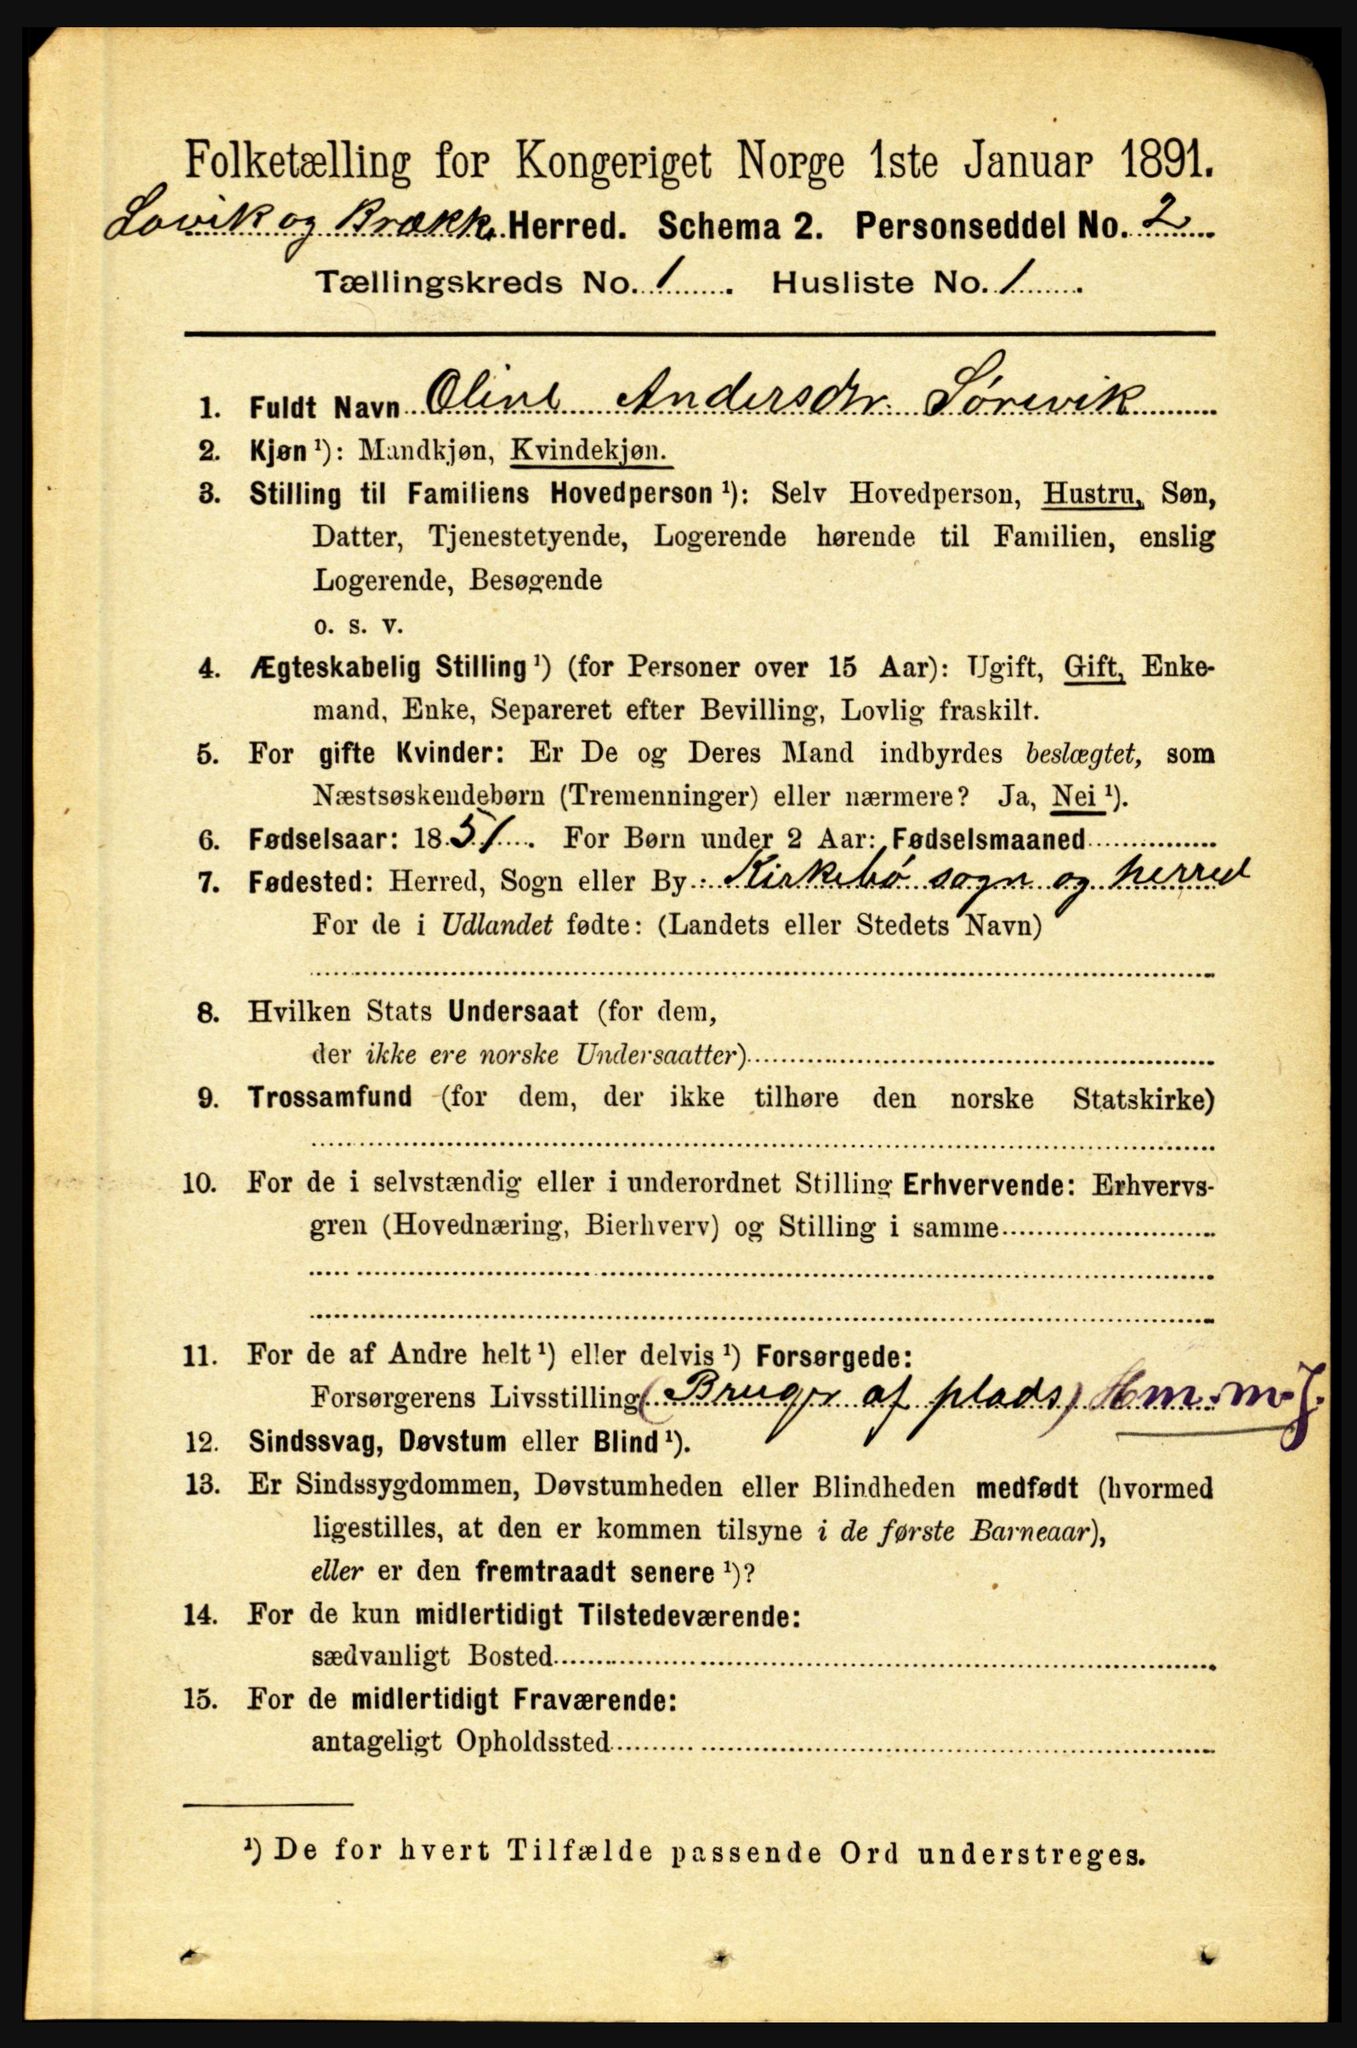 Folketælling for Kongeriget Norge 1ste Januar 1891.
Lavik og Brække Herred. Schema 2. Personseddel No. 2
Tællingskreds No. 1. Husliste No. 1.
1. Fuldt Navn Oline Andersdtr. Sørevik
2. Kjøn ¹): Mandkjøn, Kvindekjøn.
3. Stilling til Familiens Hovedperson ¹): Selv Hovedperson, Hustru, Søn,
Datter, Tjenestetyende, Logerende hørende til Familien, enslig
Logerende, Besøgende
o. s. v.
4. Ægteskabelig Stilling ¹) (for Personer over 15 Aar): Ugift, Gift, Enke-
mand, Enke, Separeret efter Bevilling, Lovlig fraskilt.
5. For gifte Kvinder: Er De og Deres Mand indbyrdes beslægtet, som
Næstsøskendebørn (Tremenninger) eller nærmere? Ja, Nei ¹).
6. Fødselsaar: 1851. For Børn under 2 Aar: Fødselsmaaned
7. Fødested: Herred, Sogn eller By Kirkebø sogn og herred
For de i Udlandet fødte: (Landets eller Stedets Navn)
8. Hvilken Stats Undersaat (for dem,
der ikke ere norske Undersaatter)
9. Trossamfund (for dem, der ikke tilhøre den norske Statskirke)
10. For de i selvstændig eller i underordnet Stilling Erhvervende: Erhvervs-
gren (Hovednæring, Bierhverv) og Stilling i samme
11. For de af Andre helt ¹) eller delvis ¹) Forsørgede:
Forsørgerens Livsstilling (Bruger af plads) Hm. m. J.
12. Sindssvag, Døvstum eller Blind ¹).
13. Er Sindssygdommen, Døvstumheden eller Blindheden medfødt (hvormed
ligestilles, at den er kommen tilsyne i de første Barneaar),
eller er den fremtraadt senere ¹)?
14. For de kun midlertidigt Tilstedeværende:
sædvanligt Bosted
15. For de midlertidigt Fraværende:
antageligt Opholdssted
¹) De for hvert Tilfælde passende Ord understreges.